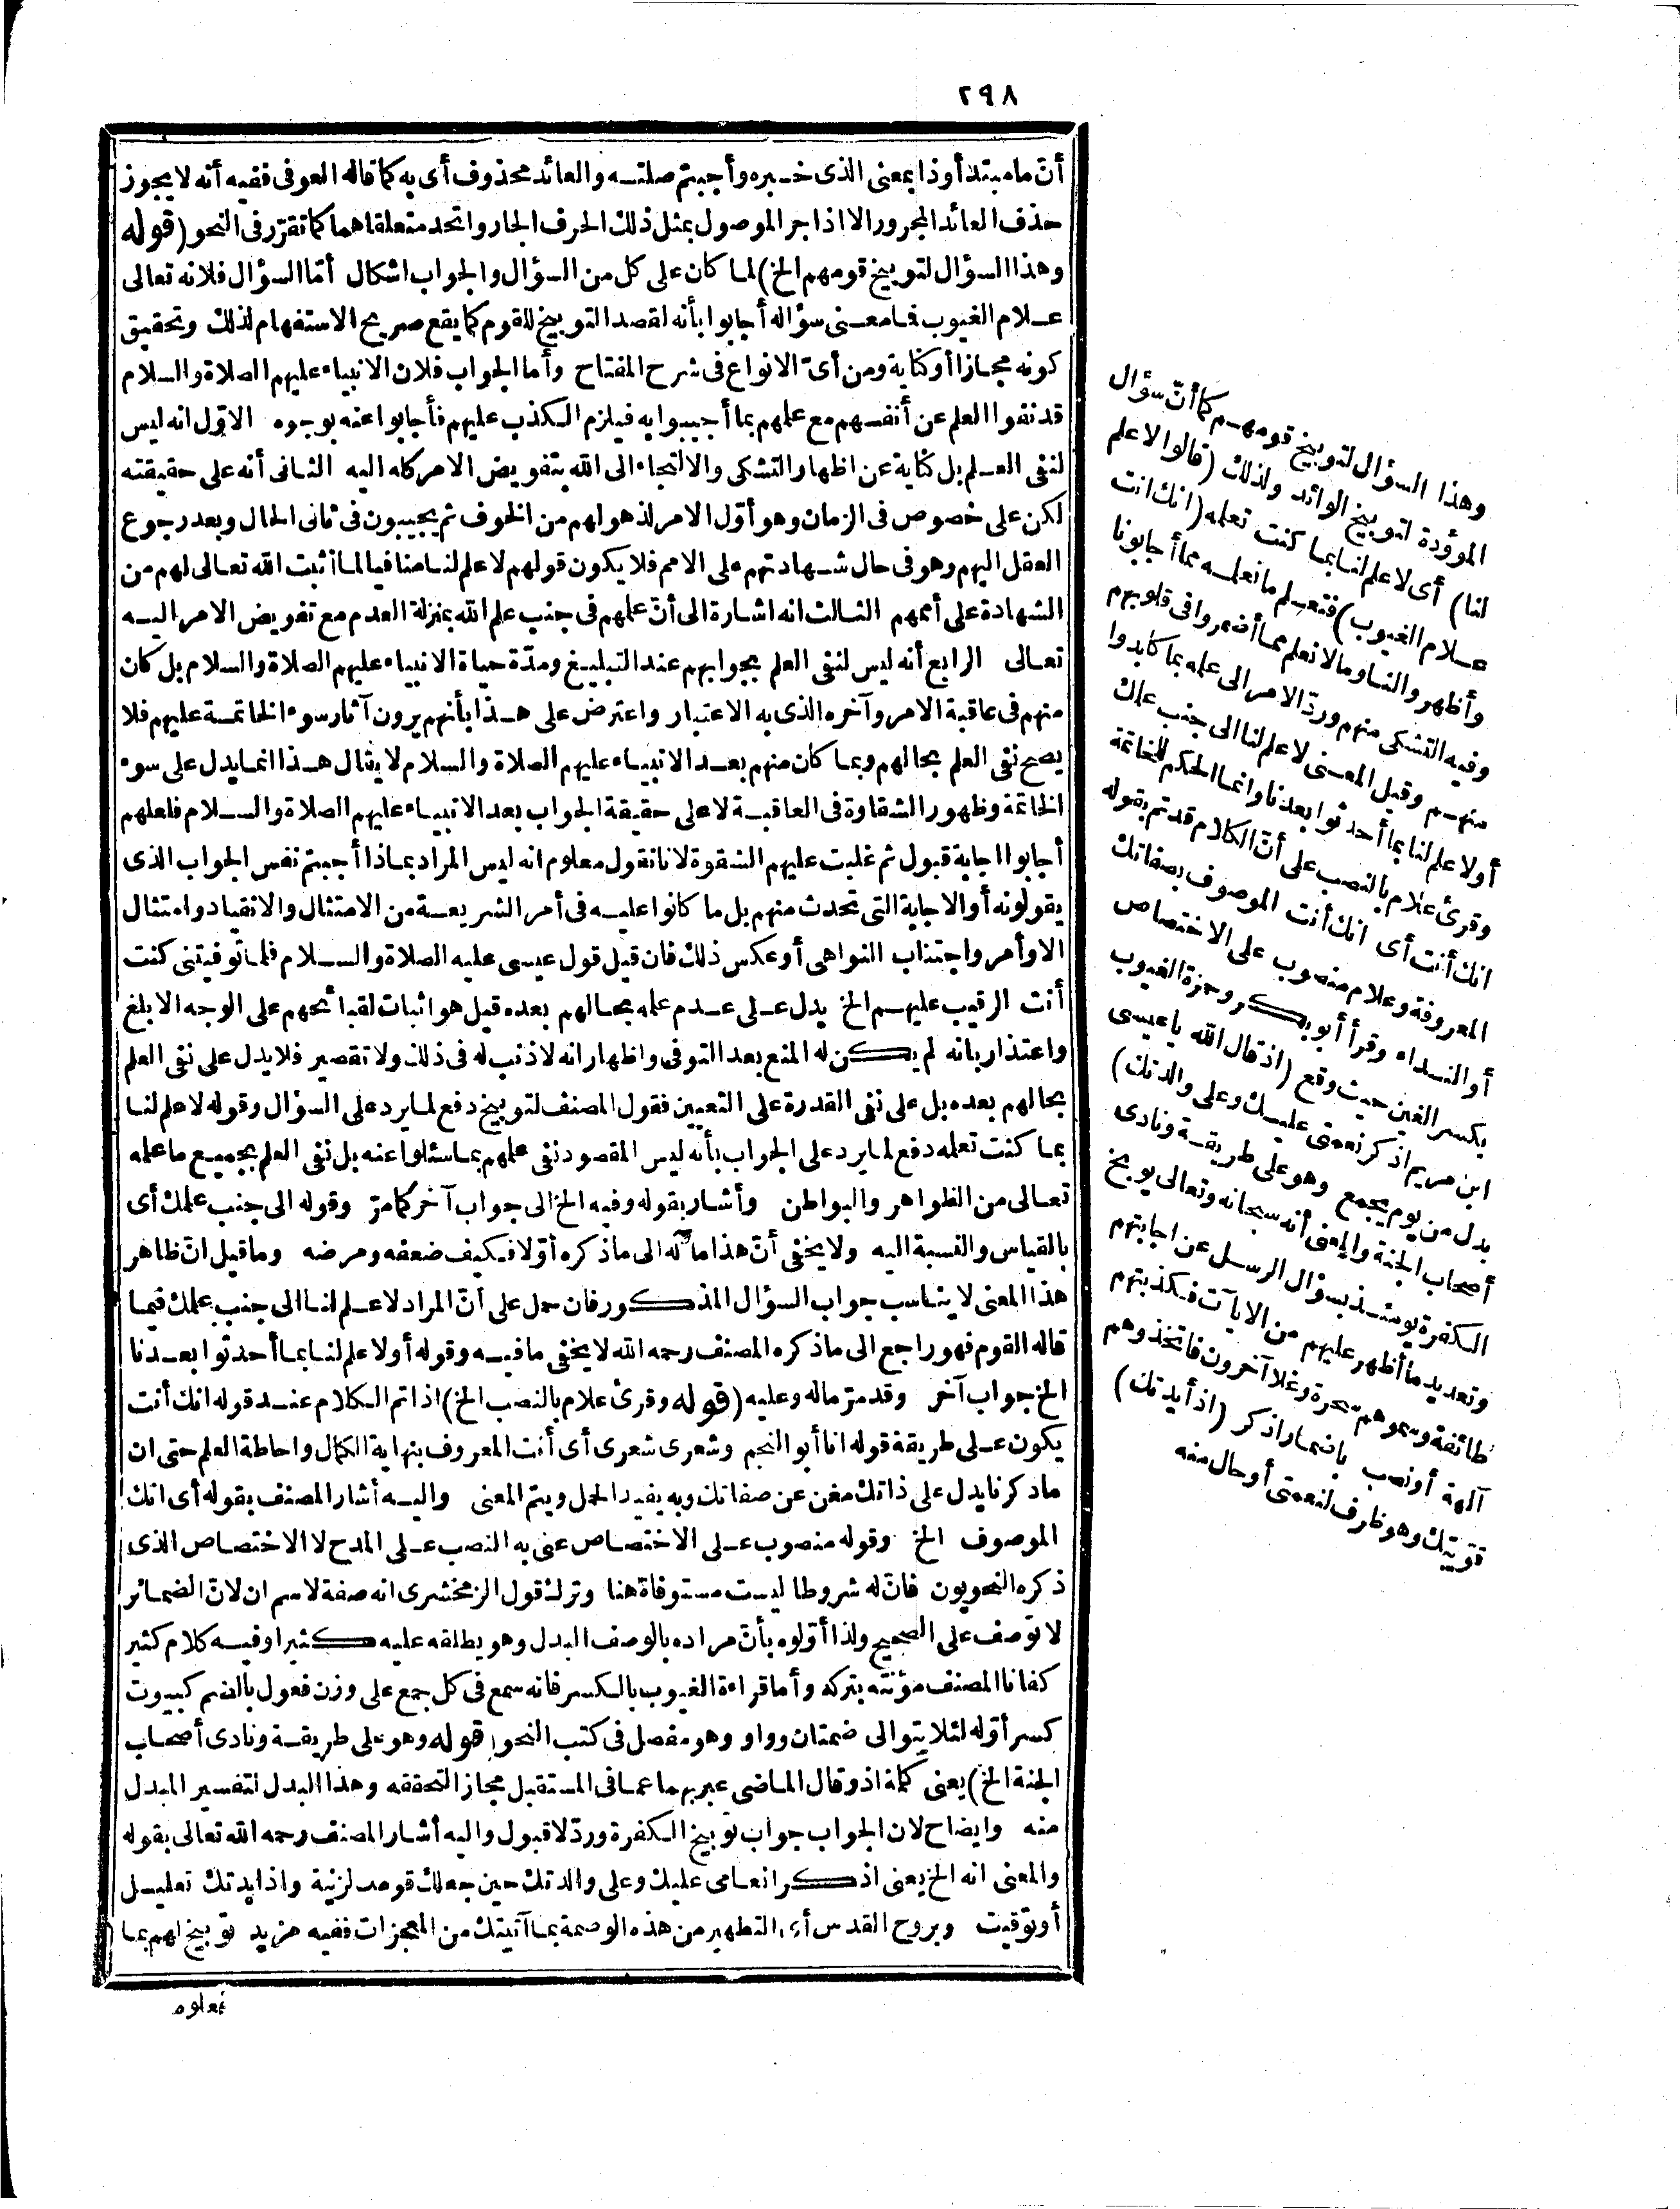 ٢٩٨
أنّ ما مبتدأ وذا بمعنى الذى خبره وأجبتم صلته والعائد محذوف أى به كما قاله العوفى ففيه أنه لا يجوز
حذف العائد المجرور الا اذا جر الموصول بمثل ذلك الحرف الجار واتحد متعلقاهما كما تقرّر فى النحو (قوله
وهذا السؤال لتوبيخ قومهم الخ) لما كان على كل من السؤال والجواب اشكال أمّا السؤال فلانه تعالى
علام الغيوب فما معنى سؤاله أجابوا بأنه لقصد التوبيخ للقوم كما يقع صريح الاستفهام لذلك وتحقيق
كونه مجازا أو كناية ومن أىّ الانواع فى شرح المفتاح وأما الجواب فلان الانبياء عليهم الصلاة والسلام
قد نفوا العلم عن أنفسهم مع علمهم بما أجيبوا به فيلزم الكذب عليهم فأجابوا عنه بوجوه الاوّل انه ليس
لنفى العلم بل كناية عن اظهار التشكى والالتجاء الى الله بتفويض الامر كله اليه الثانى أنه على حقيقته
لكن على خصوص فى الزمان وهو أوّل الامر لذهولهم من الخوف ثم يجيبون فى ثانى الحال وبعد رجوع
العقل اليهم وهو فى حال شهادتهم على الامم فلا يكون قولهم لا علم لنا منافيا لما أثبت الله تعالى لهم من
الشهادة على أممهم الثالث انه اشارة الى أنّ علمهم فى جنب علم الله بمنزلة العدم مع تفويض الامر اليه
تعالى الرابع أنه ليس لنفى العلم بجوابهم عند التبليغ ومدّة حياة الانبياء عليهم الصلاة والسلام بل كان
منهم فى عاقبة الامر وآخره الذى به الاعتبار واعترض على هذا بأنهم يرون آثار سوء الخاتمة عليهم فلا
يصح نفى العلم بحالهم وبما كان منهم بعد الانبياء عليهم الصلاة والسلام لا يقال هذا انما يدل على سوء
الخاتمة وظهور الشقاوة فى العاقبة لا على حقيقة الجواب بعد الانبياء عليهم الصلاة والسلام فلعلهم
أجابوا اجابة قبول ثم غلبت عليهم الشقوة لانا نقول معلوم انه ليس المراد بماذا أجبتم نفس الجواب الذى
يقولونه أو الاجابة التى تحدث منهم بل ما كانوا عليه فى أمر الشريعة من الامتثال والانقياد وامتثال
الاوامر واجتناب النواهى أو عكس ذلك فان قيل قول عيسى عليه الصلاة والسلام فلما توفيتنى كنت
أنت الرقيب عليهم الخ يدل على عدم علمه بحالهم بعده قيل هو اثبات لقبائحهم على الوجه الابلغ
واعتذار بانه لم يكن له المنع بعد التوفى واظهار انه لا ذنب له فى ذلك ولا تقصير فلا يدل على نفى العلم
بحالهم بعده بل على نفى القدرة على التعيين فقول المصنف لتوبيخ دفع لما يرد على السؤال وقوله لا علم لنا
بما كنت تعلمه دفع لما يرد على الجواب بأنه ليس المقصود نفى علمهم بما سئلوا عنه بل نفى العلم بجميع ما علمه
تعالى من الظواهر والبواطن وأشار بقوله وفيه الخ الى جواب آخر كما مرّ وقوله الى جنب علمك أى
بالقياس والنسبة اليه ولا يخفى أنّ هذا مآله الى ما ذكره أوّلا فكيف ضعفه ومرضه وما قيل انّ ظاهر
هذا المعنى لا يناسب جواب السؤال المذكور فان حمل على أنّ المراد لا علم لنا الى جنب علمك فيما
قاله القوم فهو راجع الى ما ذكره المصنف رحمه الله لا يخفى ما فيه وقوله أو لا علم لنا بما أحدثوا بعدنا
الخ جواب آخر وقد مرّ ماله وعليه (قوله وقرئ علام بالنصب الخ) اذا تم الكلام عند قوله انك أنت
يكون على طريقة قوله انا أبو النجم وشعرى شعرى أى أنت المعروف بنهاية الكمال واحاطة العلم حتى ان
ما ذكرنا يدل على ذاتك مغن عن صفاتك وبه يفيد الحمل ويتم المعنى واليه أشار المصنف بقوله أى انك
الموصوف الخ وقوله منصوب على الاختصاص عنى به النصب على المدح لا الاختصاص الذى
ذكره النحويون فانّ له شروطا ليست مستوفاة هنا وترك قول الزمخشرى انه صفة لاسم ان لانّ الضمائر
لا توصف على الصحيح ولذا أوّلوه بأنّ مراده بالوصف البدل وهو يطلقه عليه كثيرا وفيه كلام كثير
كفانا المصنف مؤنته بتركه وأما قراءة الغيوب بالكسر فانه سمع فى كل جمع على وزن فعول بالضم كبيوت
كسر أوّله لئلا يتوالى ضمتان وواو وهو مفصل فى كتب النحو (قوله وهو على طريقة ونادى أصحاب
الجنة الخ) يعنى كلمة اذ وقال الماضى عبر بهما عما فى المستقبل مجازا لتحققه وهذا البدل لتفسير المبدل
منه وايضاح لان الجواب جواب توبيخ الكفرة وردّ لا قبول واليه أشار المصنف رحمه الله تعالى بقوله
والمعنى انه الخ يعنى اذكر انعامى عليك وعلى والدتك حين جعلك قومك لزنية واذ ايدتك تعليل
أو توقيت وبروح القدس أى التطهير من هذه الوصمة بما آتيتك من المعجزات ففيه مزيد توبيخ لهم بما
وهذا السؤال لتوبيخ قومهم كما أنّ سؤال
الموؤدة لتوبيخ الوائد ولذلك (قالوا لا علم
لنا) أى لا علم لنا بما كنت تعلمه (انك انت
علام الغيوب) فتعلم ما نعلمه مما أجابونا
وأظهروا لنا وما لا نعلم مما أضمروا فى قلوبهم
وفيه التشكى منهم وردّ الامر الى علمه بما كابدوا
منهم وقيل المعنى لا علم لنا الى جنب علمك
أو لا علم لنا بما أحدثوا بعدنا وانما الحكم للخاتمة
وقرئ علام بالنصب على أنّ الكلام قد تم بقوله
انك أنت أى انك أنت الموصوف بصفاتك
المعروفة وعلام منصوب على الاختصاص
أو النداء وقرأ أبو بكر وحمزة الغيوب
بكسر الغين حيث وقع (اذ قال الله يا عيسى
ابن مريم اذكر نعمتى عليك وعلى والدتك)
بدل من يوم يجمع وهو على طريقة ونادى
أصحاب الجنة والمعنى أنه سبحانه وتعالى يوبخ
الكفرة يومئذ بسؤال الرسل عن اجابتهم
وتعديد ما أظهر عليهم من الايات فكذبتهم
طائفة وسموهم سحرة وغلا آخرون فاتخذوهم
آلهة أو نصب باضمار اذكر (اذ أيدتك)
قويتك وهو ظرف لنعمتى أو حال منه